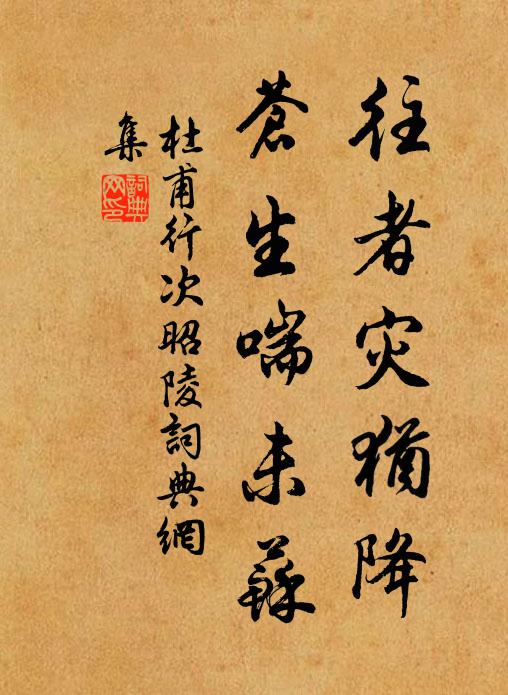 往者灾猶降
蒼生喘未蘇
杜甫行次昭陵詞典網
集
詞典
网印